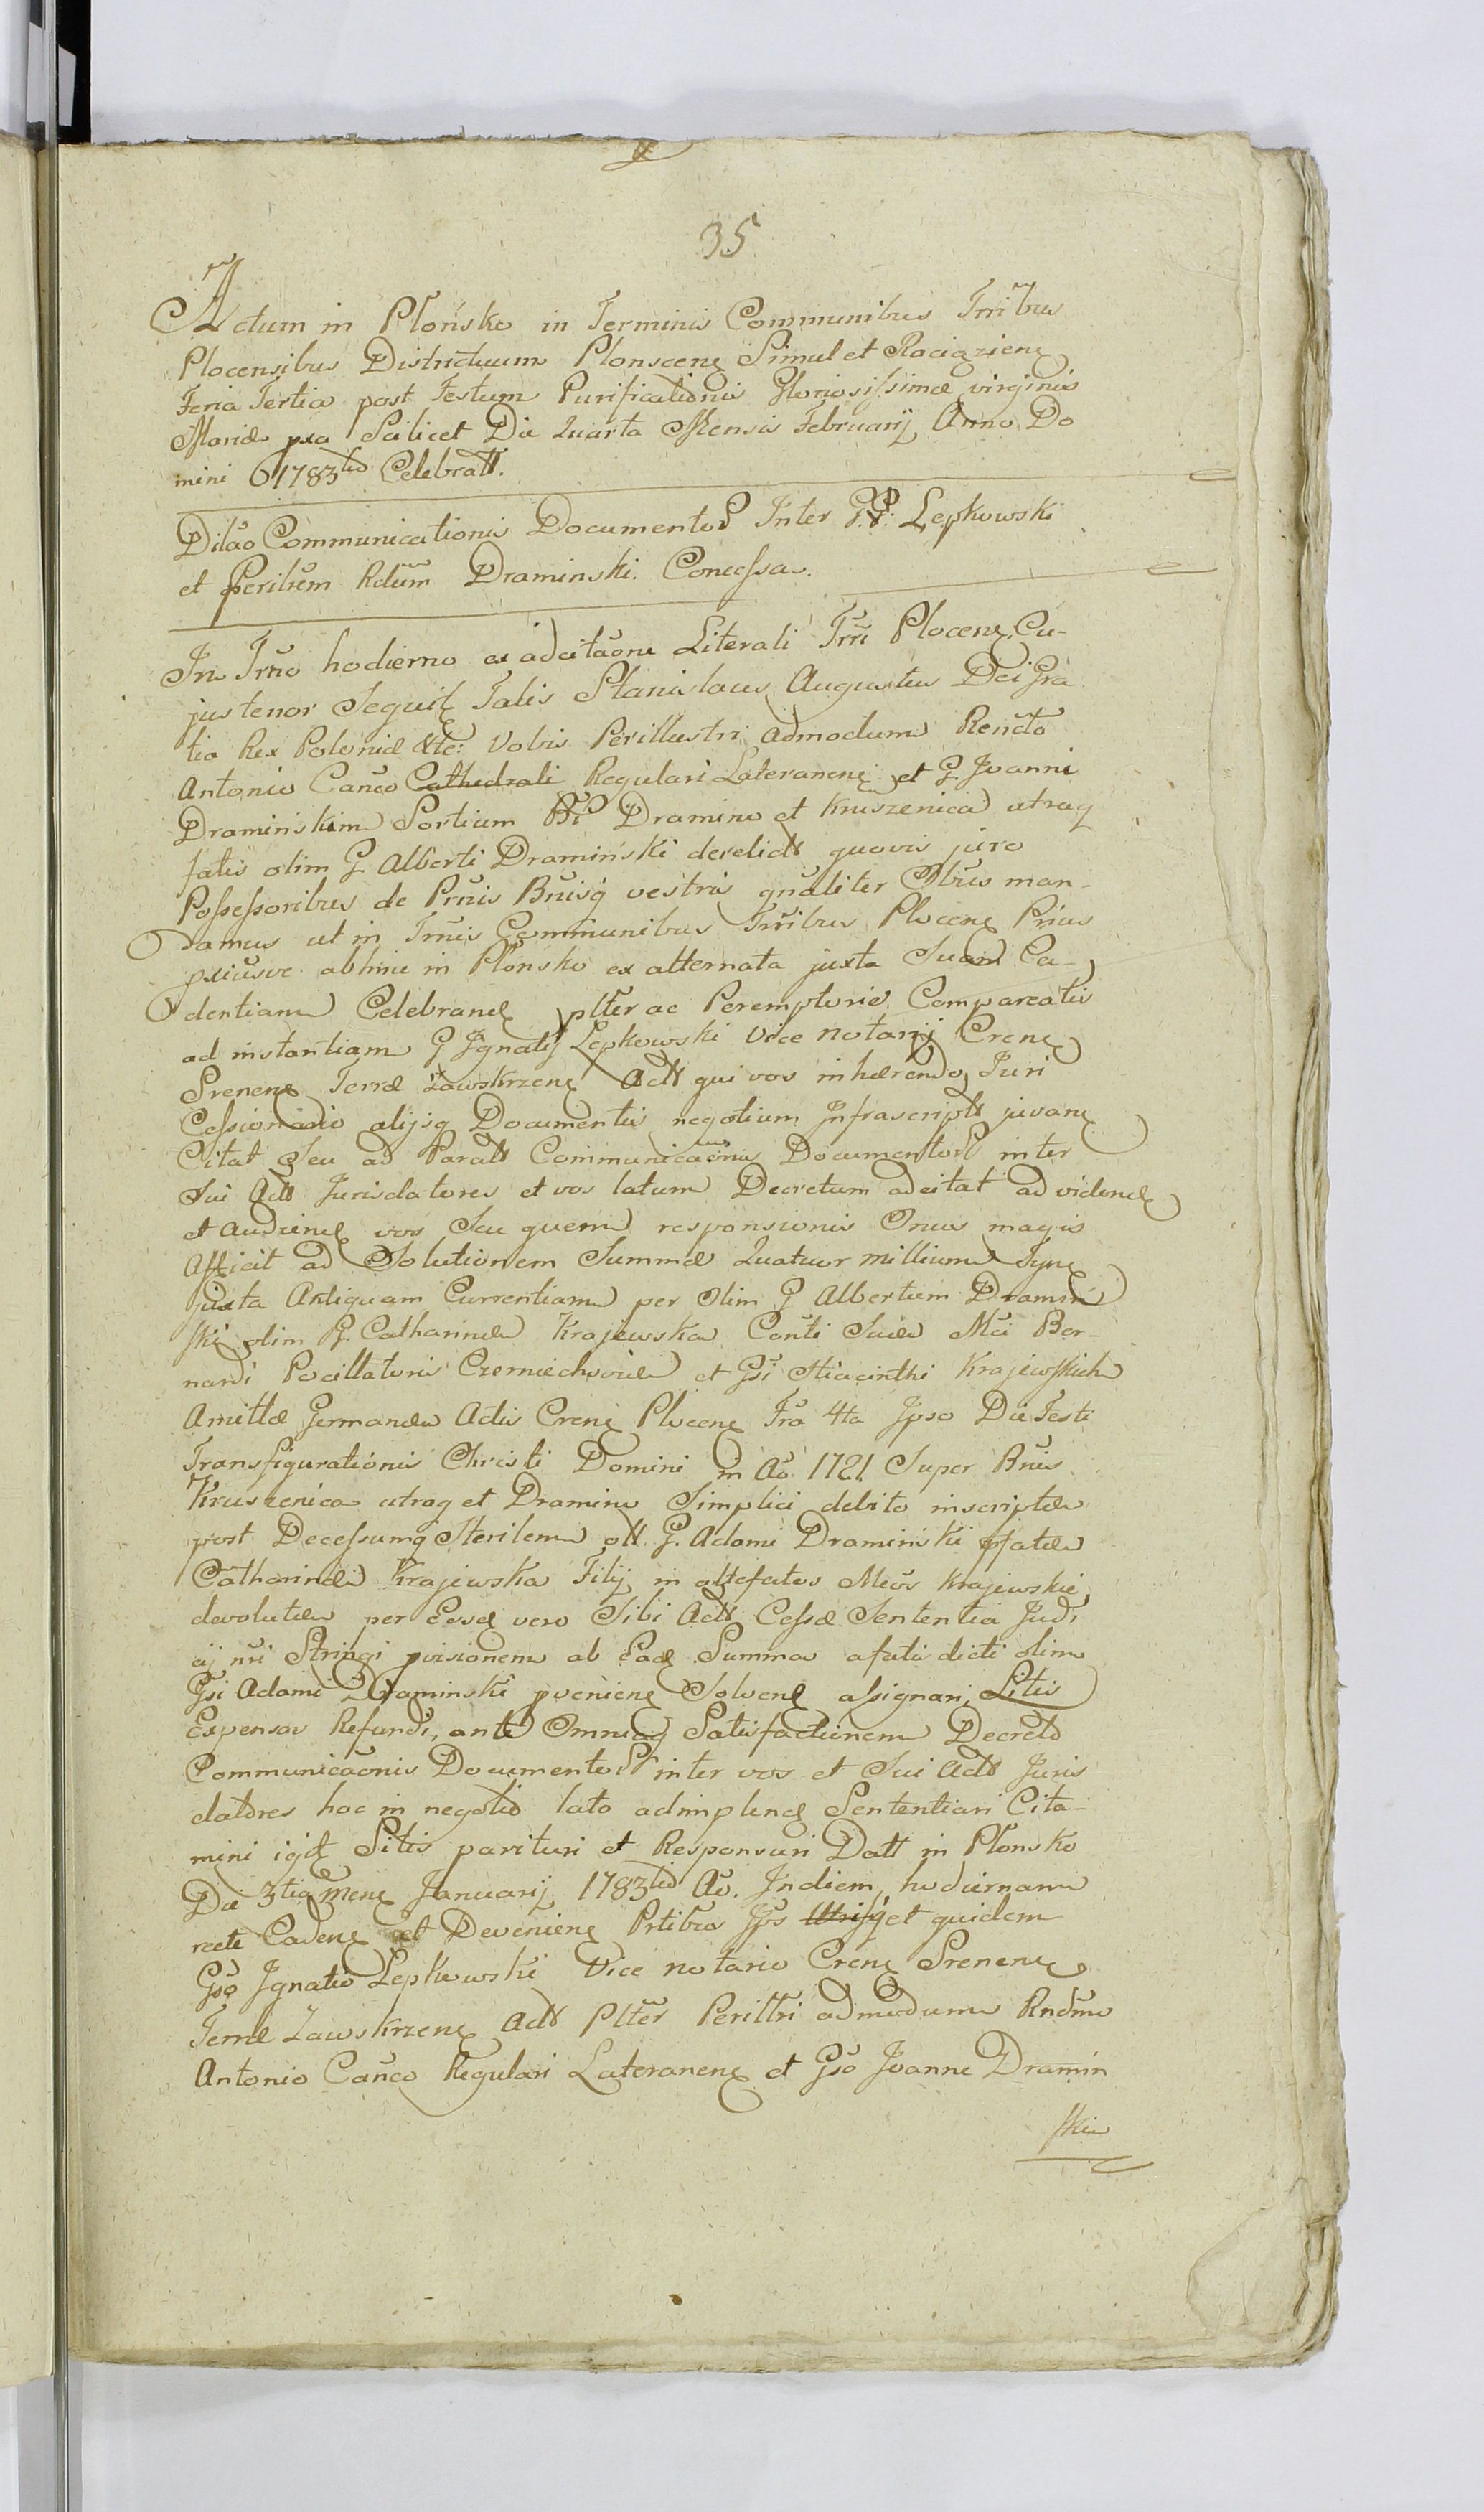 35
Actum in Płońsko in Terminis Communibus Trribus
Plocensibus Districtuum Plonscenς Simul et Raciązienς
Feria Tertia post Festum Purificationis Gloriosissimæ virginis
Mariæ pxa Scilicet Die Quarta Mensis Februarij Anno Do
mini 1783tio Celebratt.
Dilão Communicationis Documentor Inter G.G: Lepkowski
et Perillrem Rdum Draminski. Concessa.
In Trno hodierno ex adcitãone Literali Trri Plocenς Cu-
jus tenor Sequit Talis Stanislaus Augustus Dei Gra
tia Rex Poloniæ &te: Vobis Perillustri admodum Rendto
Antonio Canco Cathedrali Regulari Lateranenς et G Joanni
Dramińskim Sortium Br Dramino et Kruszenica utraq
fatis olim G Alberti Dramiński derelictt quovis jure
Possessoribus de Prnis Bnisq vestris gnaliter Obus man-
damus ut in Trnis Communibus Trribus Plocenς Prius
pxiusve abhinc in Płonsko ex alternata juxta Suam Ca-
dentiam Celebranς plter ac Peremptorie Compareatis
ad instantiam G Ignatij Lepkowski Vice notarij Crenς
Srenenς Terræ Zawskrzenς Actt qui vos inhærendo Juri
Cessionario alijsq Documentis negotium Infrascriptt juvanς
Citat Seu ad Paratt Communicãonis Documentor inter
Sui Actt Jurisdatores et vos latum Decretum adcitat ad videnς
et Audienς vos Seu quem responsionis Onus magis
Afficit ad Solutionem Summæ Quatuor millium Tynς
juxta Antiquam Currentiam per Olim G Albertum Dramiń
ski olim G. Catharinæ Krajewska Conti Suæ Mci Ber-
nardi Pocillatoris Czerniechoviæ et Gsi Hiacinthi Krajewskich
Amittæ Germanæ Actis Crenς Plocenς Fra 4ta Ipso Die Festi
Transfigurationis Christi Domini in Ao. 1721 Super Bnis
Kruszenica utraq et Dramino Simplici debito inscriptæ
post Decessumq Sterilem ott G. Adami Dramiński pfatæ
Catharinæ Krajewska Filij in attefatos Mcos Krajewskie
devolutæ per Eosdς vero Sibi Actt Cessæ Sententia Judi
cij nri Stringi pvisionem ab Eadς Summa afati dicti olim
Gsi Adami Draminski pvenienς Solvenς assignari, Litis
Expensas Refundi, ante Omniaq Satisfactionem Decreto
Communicãonis Documentor inter vos et Sui Actt Juris
datores hoc in negotio lato adimplenς Sententiari Cita-
mini igit Sitis parituri et Responsuri Datt in Płonsko
Die 3tia Menς Januarij 1783tio Ao. In diem hodiernam
recte Cadenς et Devenienς Prtibus Ips Utrisq et quidem
Gso Ignatio Lepkowski Vice notario Crenς Srenenς
Terræ Zawskrzenς Actt Plter Perilltri admodum Rndmo
Antonio Canco Regulari Lateranenς et Gso Joanne Dramin
skim